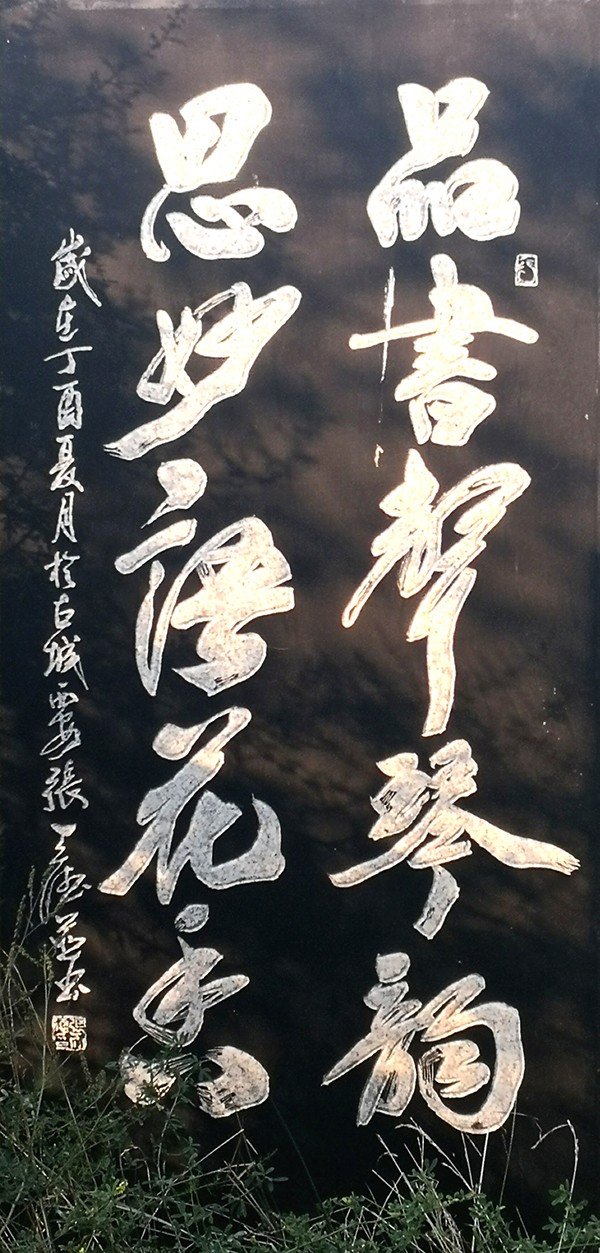 品書聲琴韻
思妙語花香
歲在丁酉夏月於古城西安張
並書